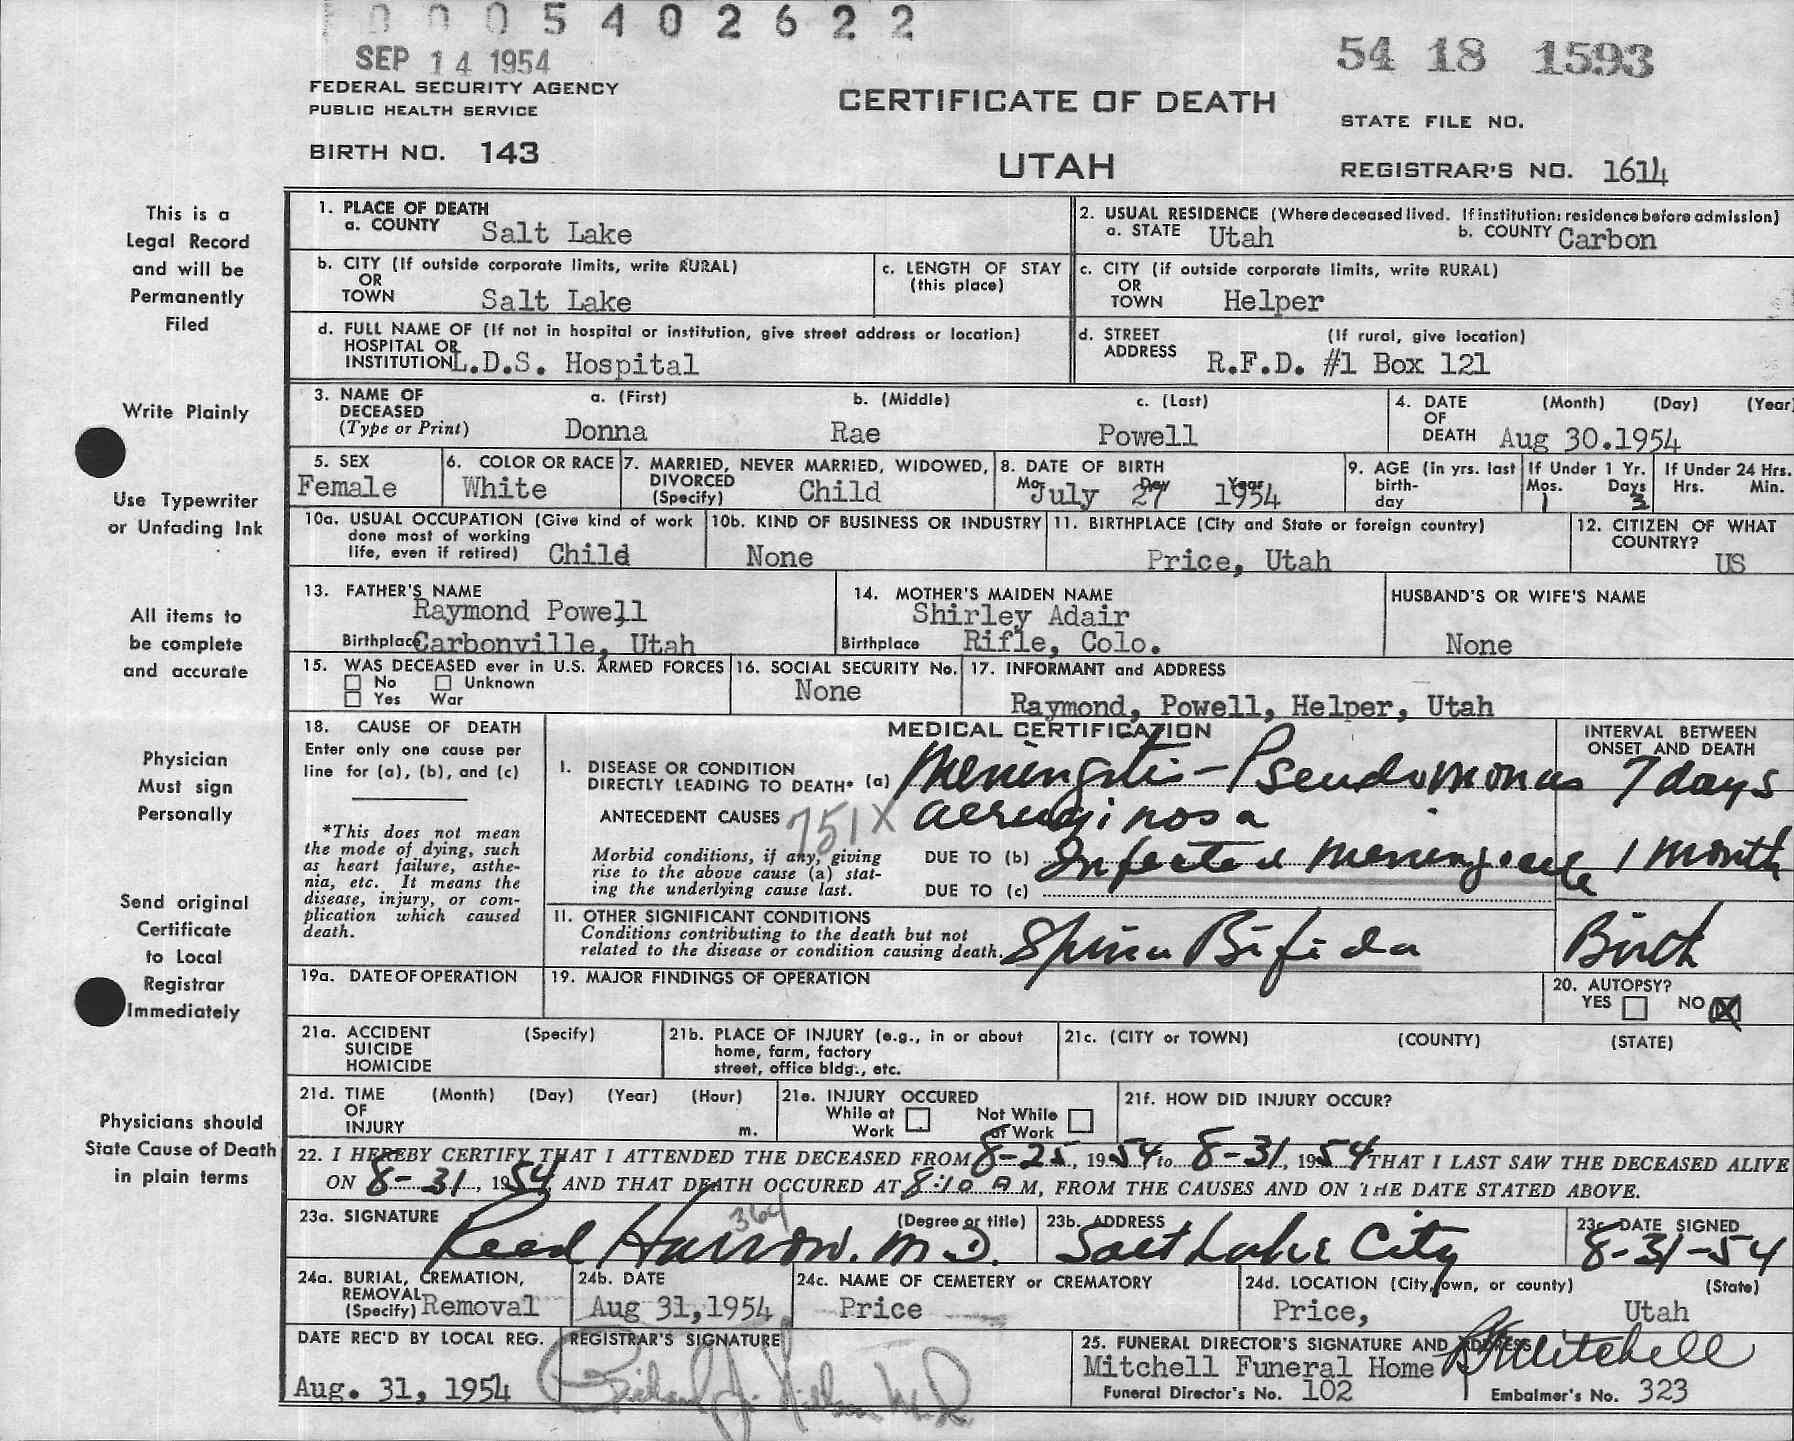 0005402622
SEP 14 1954
54 18 1593
FEDERAL SECURITY AGENCY
PUBLIC HEALTH SERVICE
CERTIFICATE OF DEATH
STATE FILE NO.
BIRTH NO. 143
UTAH
REGISTRAR'S NO. 1614
This is a
Legal Record
and will be
Permanently
Filed
Write Plainly
Use Typewriter
or Unfading Ink
All items to
be complete
and accurate
Physician
Must sign
Personally
Send original
Certificate
to Local
Registrar
Immediately
Physicians should
State Cause of Death
in plain terms
1. PLACE OF DEATH
a. COUNTY Salt Lake
2. USUAL RESIDENCE (Where deceased lived. If institution: residence before admission)
a. STATE Utah b. COUNTY Carbon
b. CITY (If outside corporate limits, write RURAL)
OR
TOWN Salt Lake
c. LENGTH OF STAY
(this place)
c. CITY (if outside corporate limits, write RURAL)
OR
TOWN Helper
d. FULL NAME OF (If not in hospital or institution, give street address or location)
HOSPITAL OR
INSTITUTION L.D.S. Hospital
d. STREET (If rural, give location)
ADDRESS R.F.D. #1 Box 121
3. NAME OF DECEASED (Type or Print)
a. (First) b. (Middle) c. (Last)
Donna Rae Powell
4. DATE OF DEATH (Month) (Day) (Year)
Aug 30.1954
5. SEX
Female
6. COLOR OR RACE
White
7. MARRIED, NEVER MARRIED, WIDOWED,
DIVORCED
(Specify) Child
8. DATE OF BIRTH
Mo. Day Year
July 27 1954
9. AGE (in yrs. last
birth-
day
If Under 1 Yr.
Mos. Days
1 3
If Under 24 Hrs.
Hrs. Min.
10a. USUAL OCCUPATION (Give kind of work
done most of working
life, even if retired) Child
10b. KIND OF BUSINESS OR INDUSTRY
None
11. BIRTHPLACE (City and State or foreign country)
Price, Utah
12. CITIZEN OF WHAT
COUNTRY?
US
13. FATHER'S NAME
Raymond Powell
Birthplace Carbonville, Utah
14. MOTHER'S MAIDEN NAME
Shirley Adair
Birthplace Rifle, Colo.
HUSBAND'S OR WIFE'S NAME
None
15. WAS DECEASED ever in U.S. ARMED FORCES
No Unknown
Yes War
16. SOCIAL SECURITY No.
None
17. INFORMANT and ADDRESS
Raymond, Powell, Helper, Utah
18. CAUSE OF DEATH
Enter only one cause per
line for (a), (b), and (c)
*This does not mean
the mode of dying, such
as heart failure, asthe-
nia, etc. It means the
disease, injury, or com-
plication which caused
death.
MEDICAL CERTIFICATION
INTERVAL BETWEEN
ONSET AND DEATH
I. DISEASE OR CONDITION
DIRECTLY LEADING TO DEATH* (a) Meningitis - Pseudomonas 7 days
ANTECEDENT CAUSES 751X aeruginosa
Morbid conditions, if any, giving
rise to the above cause (a) stat-
ing the underlying cause last.
DUE TO (b) Infected meningocele 1 month
DUE TO (c)
II. OTHER SIGNIFICANT CONDITIONS
Conditions contributing to the death but not
related to the disease or condition causing death. Spina Bifida Birth
19a. DATE OF OPERATION
19. MAJOR FINDINGS OF OPERATION
20. AUTOPSY?
YES NO X
21a. ACCIDENT (Specify)
SUICIDE
HOMICIDE
21b. PLACE OF INJURY (e.g., in or about
home, farm, factory
street, office bldg., etc.
21c. (CITY or TOWN) (COUNTY) (STATE)
21d. TIME (Month) (Day) (Year) (Hour)
OF
INJURY m.
21e. INJURY OCCURED
While at Work Not While at Work
21f. HOW DID INJURY OCCUR?
22. I HEREBY CERTIFY THAT I ATTENDED THE DECEASED FROM 8-25, 1954 to 8-31, 1954 THAT I LAST SAW THE DECEASED ALIVE
ON 8-31, 1954 AND THAT DEATH OCCURED AT 8:10 A M, FROM THE CAUSES AND ON THE DATE STATED ABOVE.
23a. SIGNATURE (Degree or title)
364
Reed Harrow. M.D.
23b. ADDRESS
Salt Lake City
23c. DATE SIGNED
8-31-54
24a. BURIAL, CREMATION,
REMOVAL
(Specify) Removal
24b. DATE
Aug 31,1954
24c. NAME OF CEMETERY or CREMATORY
Price
24d. LOCATION (City, town, or county) (State)
Price, Utah
DATE REC'D BY LOCAL REG.
Aug. 31, 1954
REGISTRAR'S SIGNATURE
25. FUNERAL DIRECTOR'S SIGNATURE AND ADDRESS
Mitchell Funeral Home Mitchell
Funeral Director's No. 102 Embalmer's No. 323